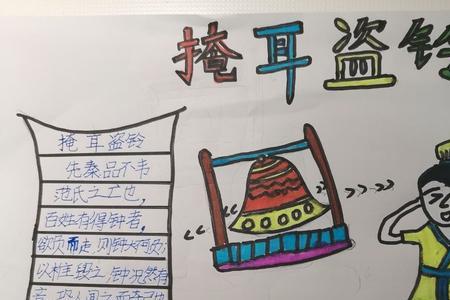 掩耳盗铃
掩耳盗铃
先秦品不韦
范氏之亡也,
百姓有得钟者,
欲负而走,则钟大不可负;
以椎毁之,钟况然有
音,恐人闻之而夺己也